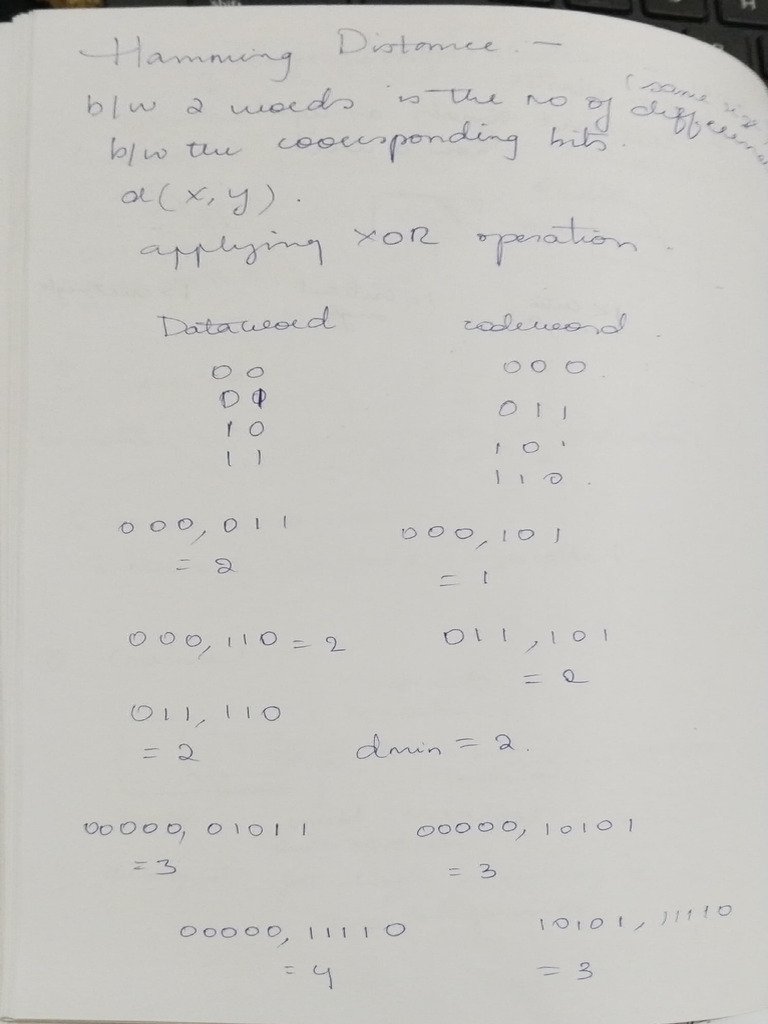 Hamming Distance :-
(same size
b/w 2 words is the no of difference
b/w the corresponding bits.
d(x,y).
applying XOR operation.
Dataword codeword.
00 000.
01 011
10 101
11 110.
000, 011 000, 101
= 2 = 1
000, 110 = 2 011, 101
= 2
011, 110
= 2 dmin = 2.
00000, 01011 00000, 10101
= 3 = 3
00000, 11110 10101, 11110
= 4 = 3